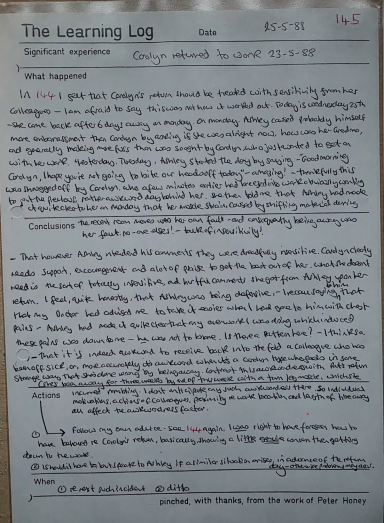 145
The Learning Log
Date 25-5-88
Significant experience Carolyn returned to work 23-5-88
What happened
In 144 I felt that Carolyn's return should be treated with sensitivity from her
Colleagues – I am afraid to say this was not how it worked out. Today is Wednesday 25th
– she came back after 6 days away on Monday. On Monday Ashley caused probably himself
more embarrassment than Carolyn by asking if she was alright now, how was her Grandma,
and generally making more fuss than was sought by Carolyn who just wanted to get on
with her work. Yesterday, Tuesday, Ashley started the day by saying – "Good morning
Carolyn, I hope you're not going to bite our heads off today" – amazing! – thankfully this
was shrugged off by Carolyn, who a few minutes earlier had
the previous rather awkward day behind her. She then told me that Ashley had made
it quite clear to her on Monday that her muscle strain caused by shifting material during
Conclusions the recent room moves was her own fault – and consequently being away was
her fault, no-one else's! – talk of insensitivity!
– That however Ashley intended his comments they were dreadfully insensitive. Carolyn clearly
needs support, encouragement and a lot of praise to get the best out of her. What she doesn't
need is the sort of totally insensitive, and hurtful comments she got from Ashley upon her
return. I feel, quite honestly, that Ashley was being defensive, – because saying to him that
my Doctor had advised me to take it easier when I had gone to him with chest
pains – Ashley had made it quite clear that any overwork I was doing which induced
these pains was down to me – he was not to blame. Is there a pattern here? – I think so
– that it is indeed awkward to receive back into the fold a colleague who has
been off sick, or more accurately
strange way, that she'd done wrong by being away.
been away for three weeks
Actions
motivations, actions of colleagues, proximity in work location, and length of time away
all affect the awkwardness factor.
① → Follow my own advice – see 144 again. I was right to have foreseen how to
have behaved re Carolyn's return, basically showing a little concern then getting
down to the work.
② I should have to but speak to Ashley if a similar situation arises, in advance of the return
When ① re next such incident ② ditto
pinched, with thanks, from the work of Peter Honey